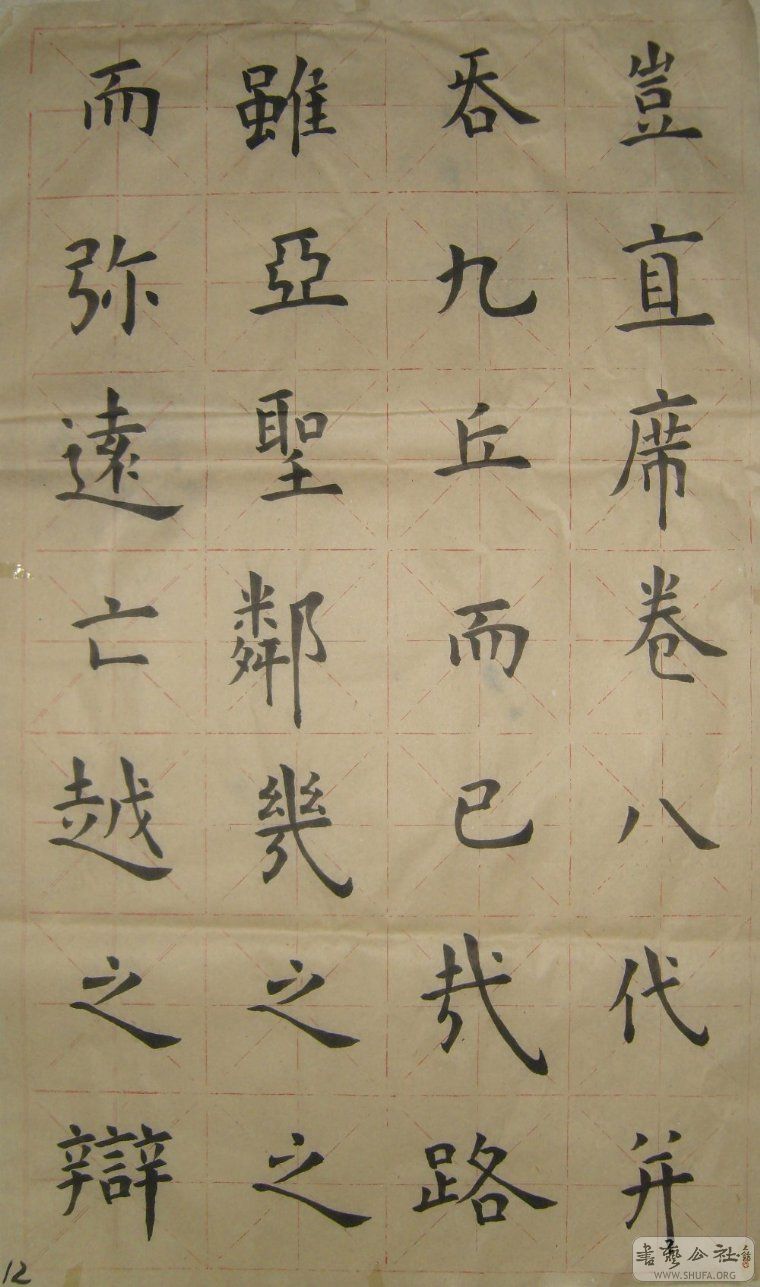 豈直席卷八代并
吞九丘而已哉路
雖亞聖鄰幾之之
而弥遠亡越之辯
12
書藝公社
WWW.SHUFA.ORG